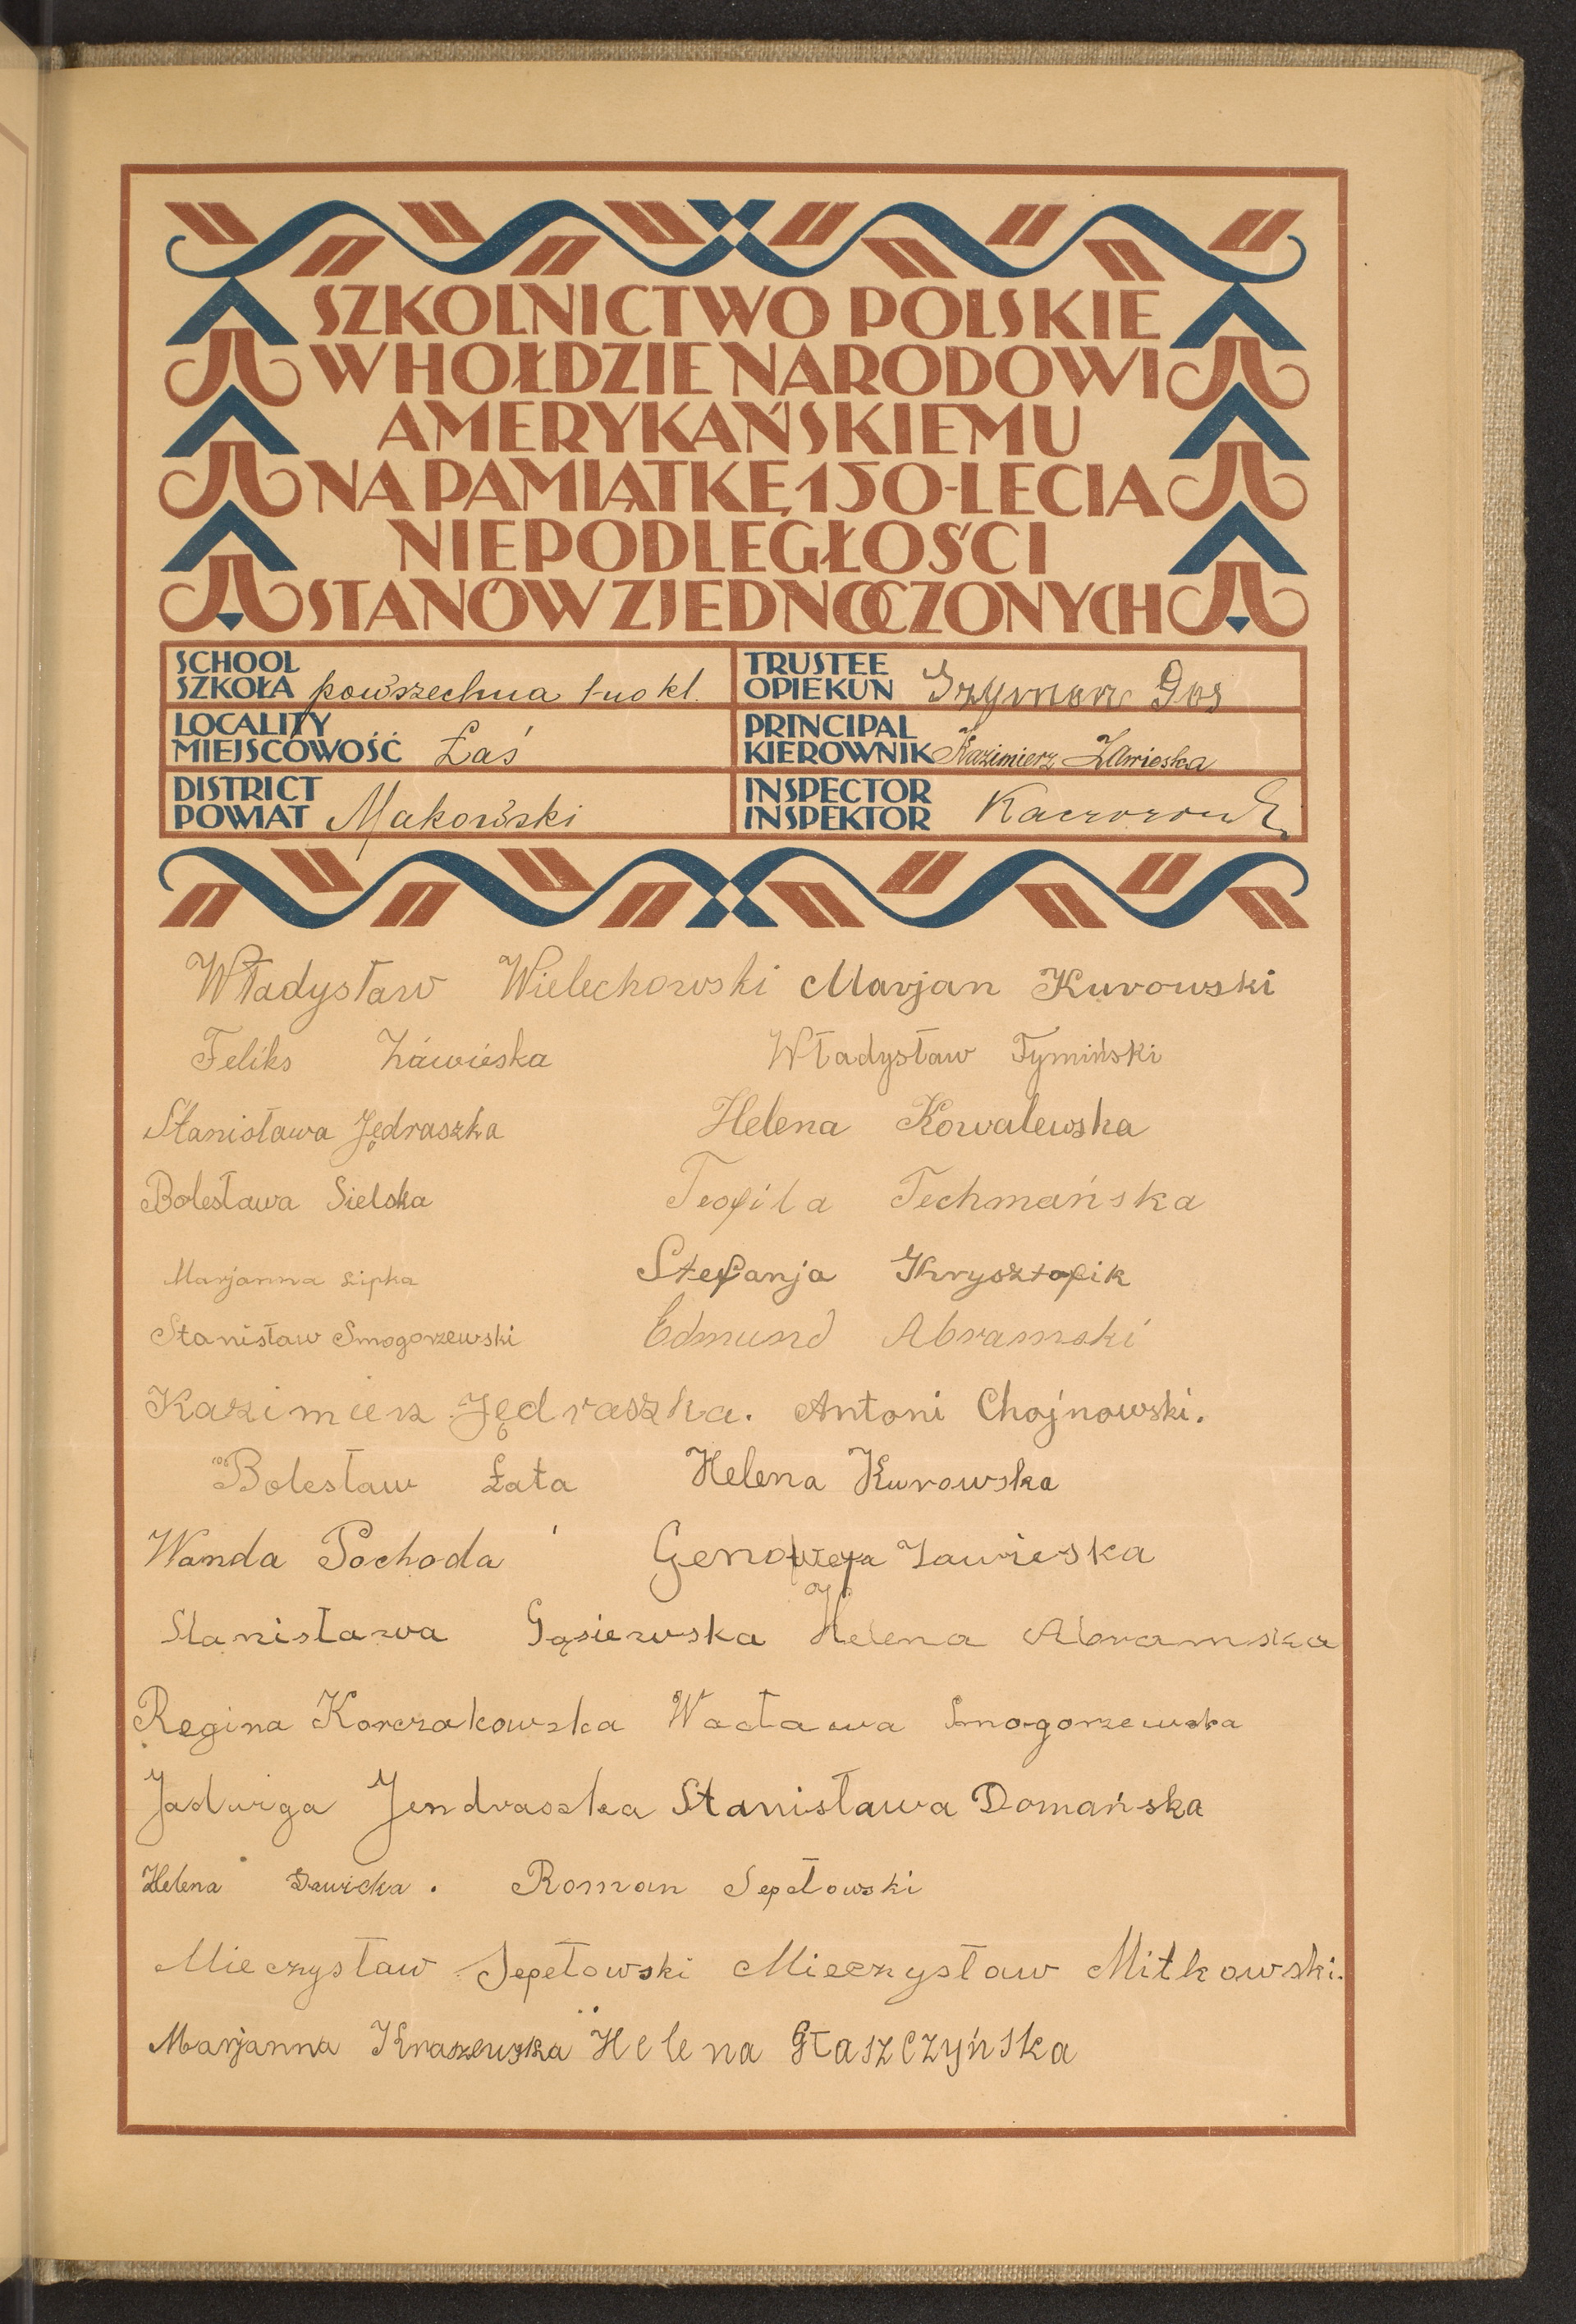 SZKOLNICTWO POLSKIE
W HOŁDZIE NARODOWI
AMERYKAŃSKIEMU
NA PAMIĄTKĘ 150-LECIA
NIEPODLEGŁOŚCI
STANÓW ZJEDNOCZONYCH
SCHOOL
SZKOŁA powszechna 1-no kl.
TRUSTEE
OPIEKUN Szymon Gos
LOCALITY
MIEJSCOWOŚĆ Łaś
PRINCIPAL
KIEROWNIK Kazimierz Zawieska
DISTRICT
POWIAT Makowski
INSPECTOR
INSPEKTOR
Władysław Wielechowski Marjan Kurowski
Feliks Záwieska Władysław Tymiński
Stanisława Jędraszka Helena Kowalewska
Bolesława Sielska Teofila Techmańska
Marjanna Lipka Stefanja Khrysztofik
Stanisław Smogorzewski Edmund Abramski
Kazimierz Jędraszka. Antoni Chojnowski.
Bolesław Łata Helena Kurowska
Wanda Pochoda Genowefa Zawieska
Stanisława Gąsiewska Helena Abramska
Regina Korczakowska Wacława Smogorzewska
Jadwiga Jendraszka Stanisława Domańska
Helena Sawicka. Roman Sepełowski
Mieczysław Sepełowski Mieczysław Mitkowski.
Marjanna Kraszewska Helena Głaszczyńska